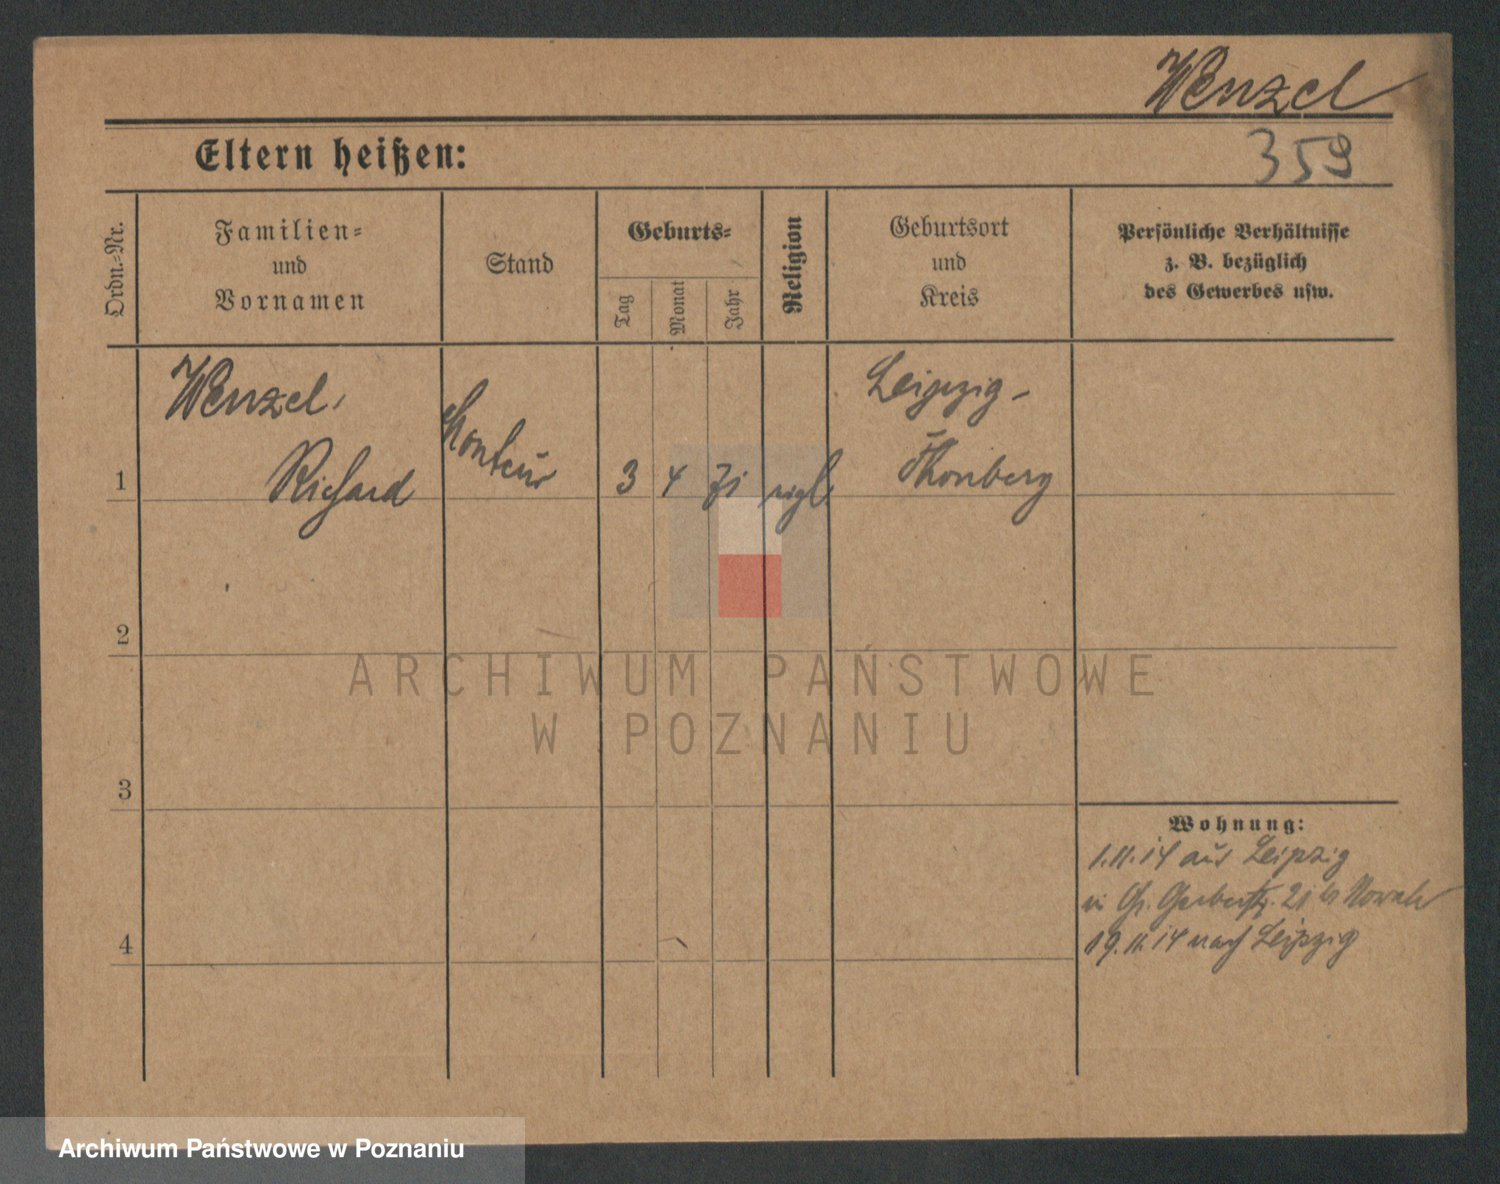 Wenzel
359
Eltern heißen:
Ordn.-Nr.
Familien-
und
Vornamen
Stand
Geburts-
Tag
Monat
Jahr
Religion
Geburtsort
und
Kreis
Persönliche Verhältnisse
z. B. bezüglich
des Gewerbes usw.
Wenzel,
Richard
Monteur
3 4 71
Leipzig-
Thonberg
1
2
3
4
ARCHIWUM PAŃSTWOWE
W POZNANIU
Wohnung:
1.11.14 aus Leipzig
in Gr. Gerberstr. 21 b Nowak
19.11.14 nach Leipzig
Archiwum Państwowe w Poznaniu